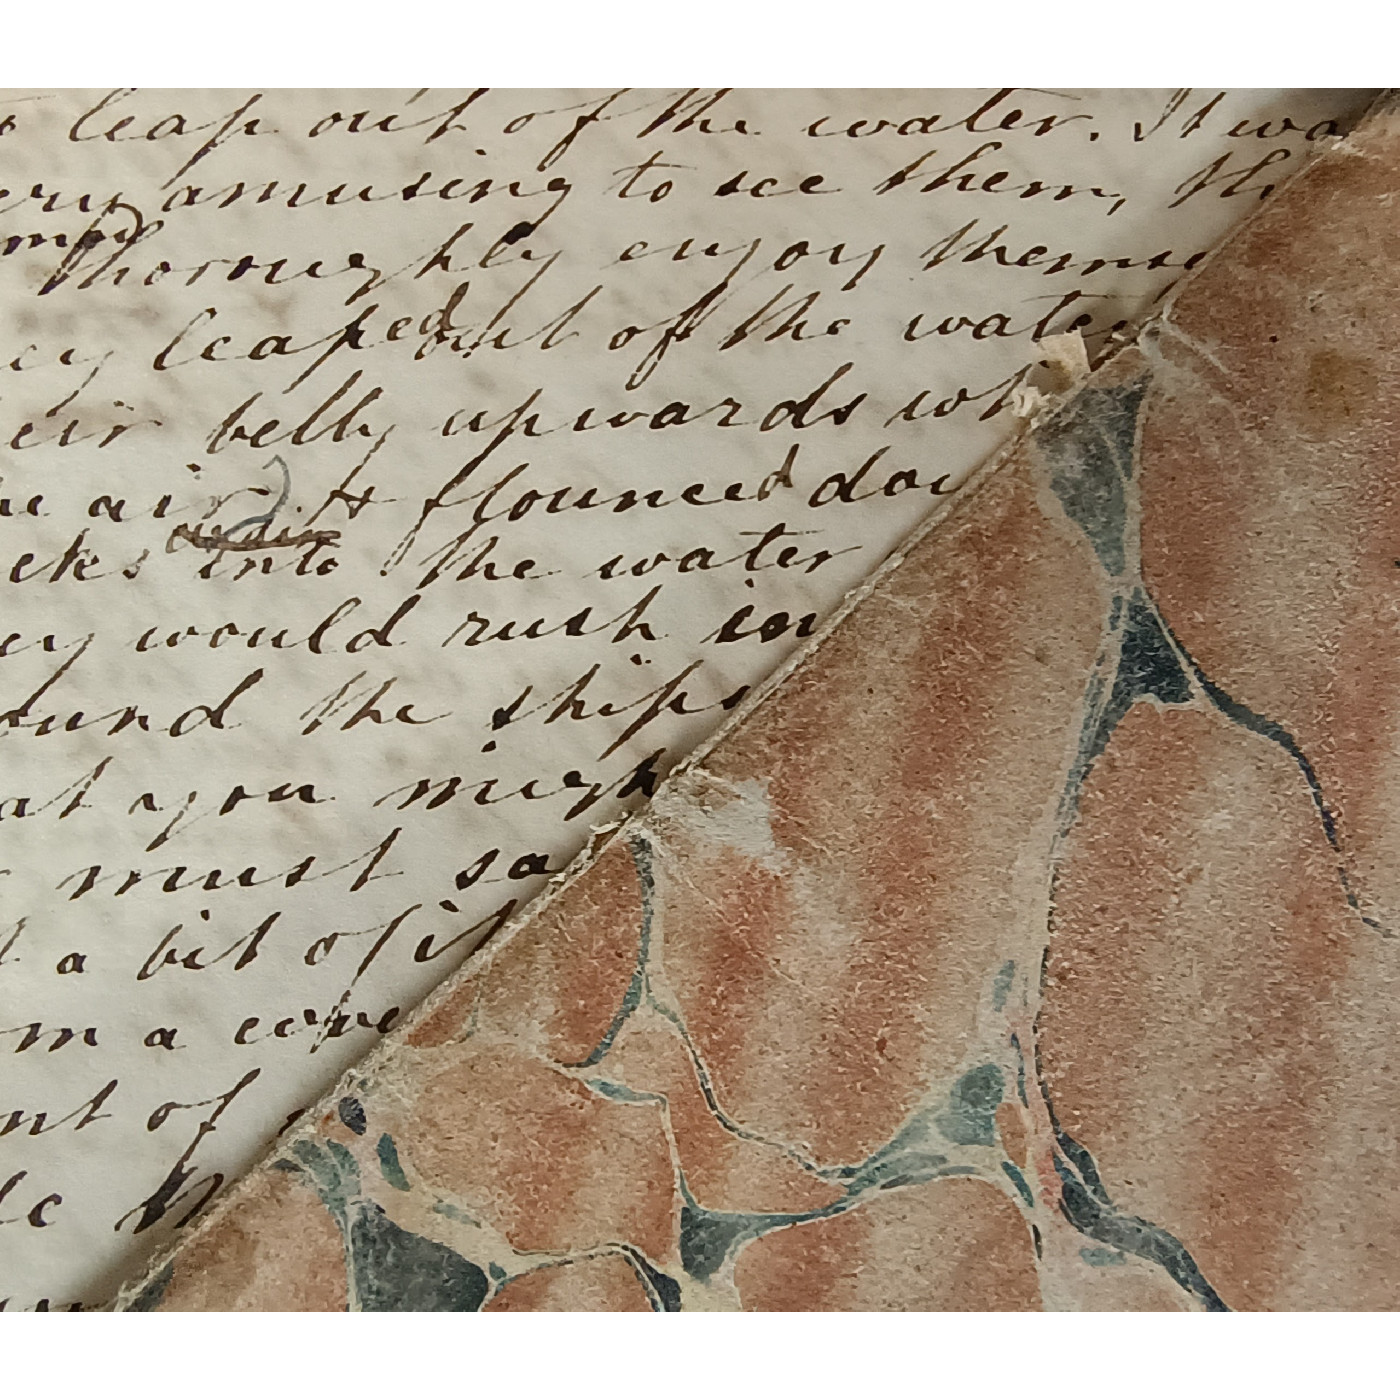 leap out of the water. It wa
ery amusing to see them, th
thoroughly enjoy themse
ey leaped out of the water
eir belly upwards wh
he air & flounced dow
cks into the water
ey would rush in
ound the ships
at you migh
must sa
a bit of it
om a cove
nt of
le